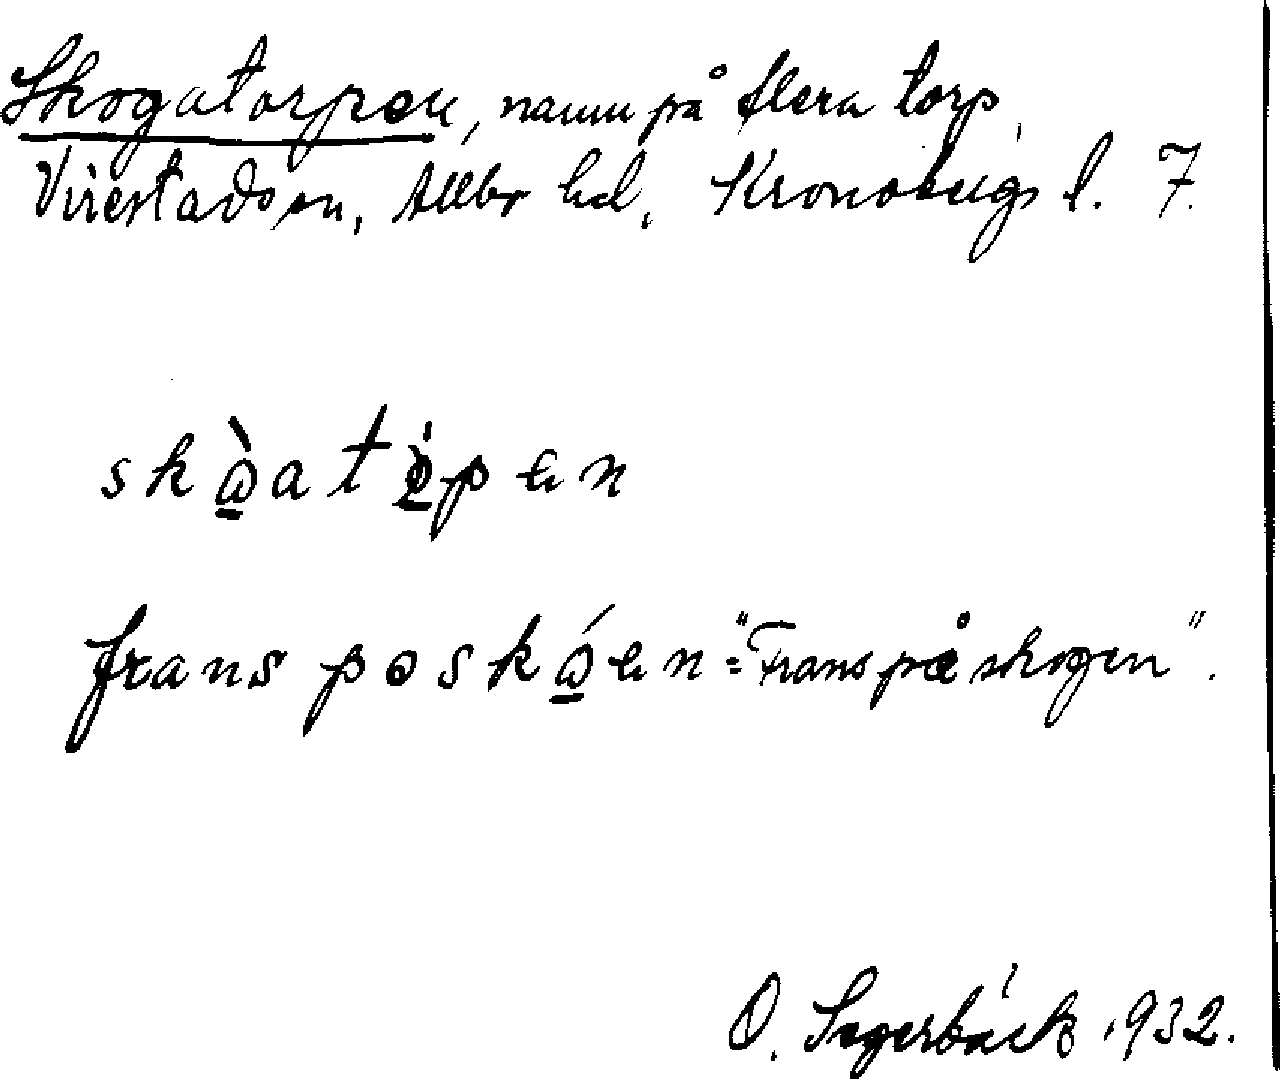 Skogatorpen, namn på flera torp,
Virestads sn, Allbo hd, Kronobergs l. 7.
skɷ̀atɷ́pen
frans poskɷ́en = "Frans på skogen".
O. Segerbäck 1932.